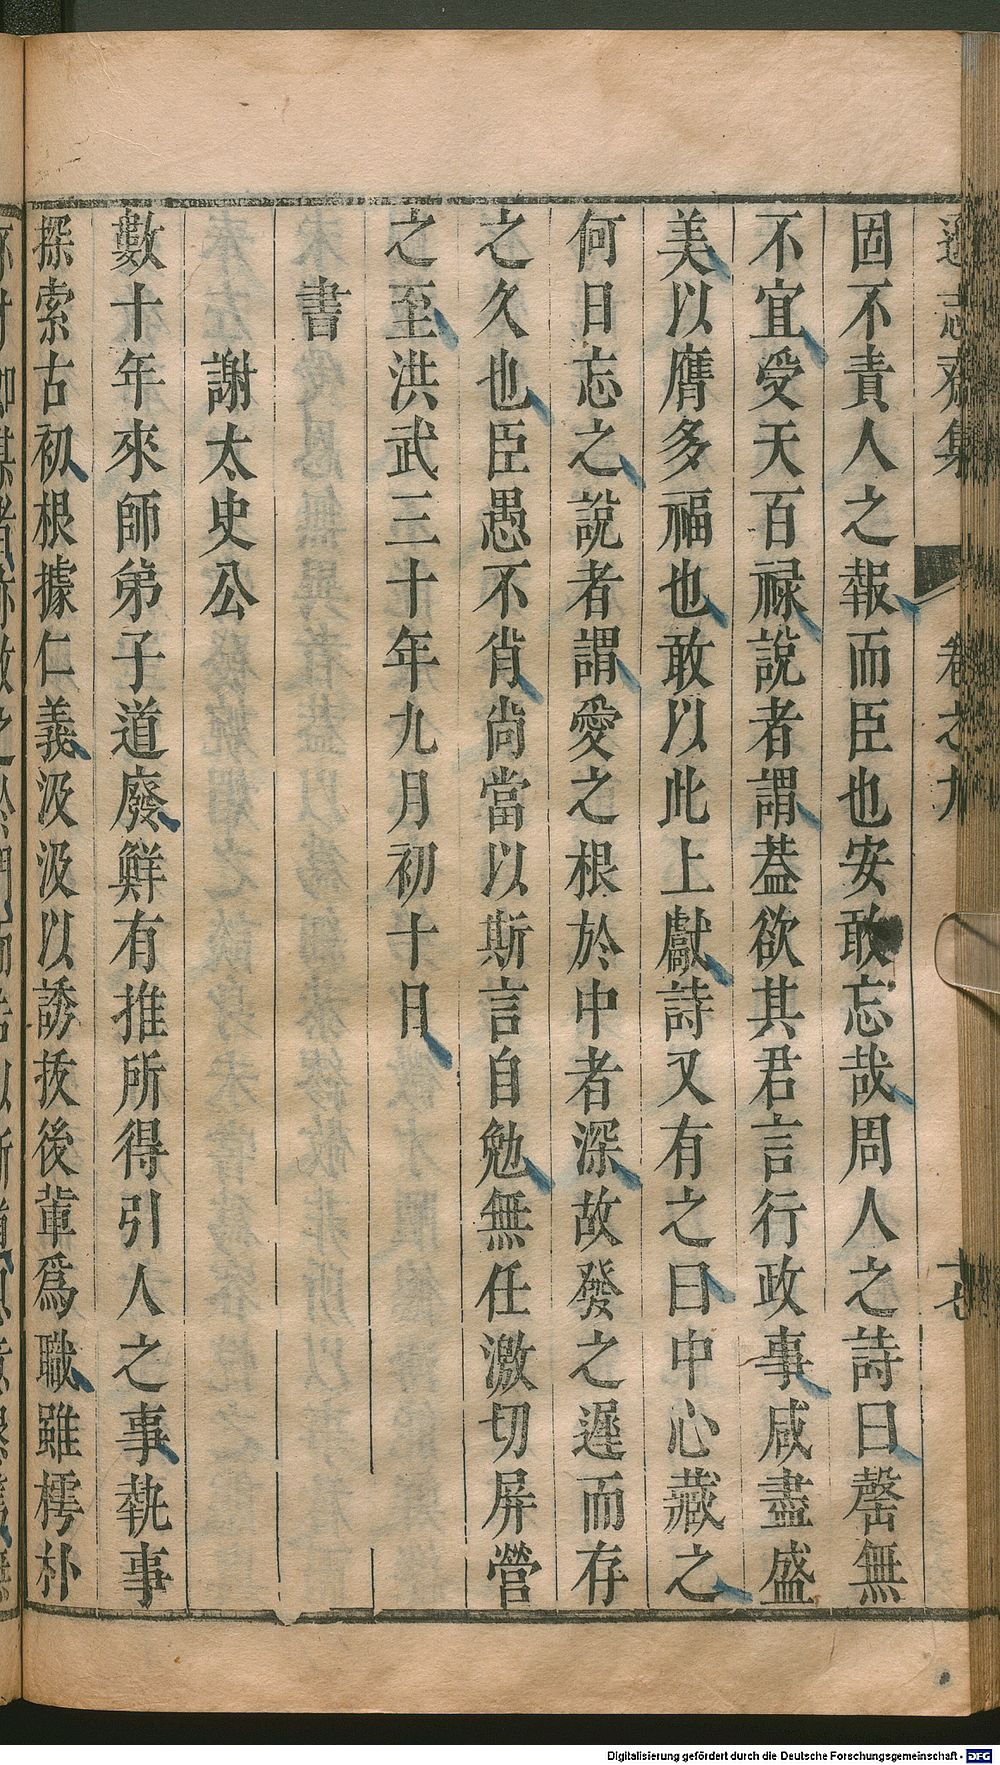 遜志齋集 卷之九 十七
固不責人之報而臣也安敢忘哉周人之詩曰罄無
不宜受天百祿說者謂葢欲其君言行政事咸盡盛
美以膺多福也敢以此上獻詩又有之曰中心藏之
何日忘之說者謂愛之根於中者深故發之遲而存
之久也臣愚不肖尚當以斯言自勉無任激切屏營
之至洪武三十年九月初十日
書
謝太史公
數十年來師弟子道廢鮮有推所得引人之事執事
探索古初根據仁義汲汲以誘掖後輩爲職雖樗朴
Digitalisierung gefördert durch die Deutsche Forschungsgemeinschaft - DFG